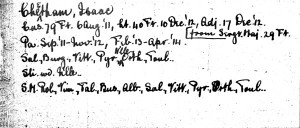 Cheetham, Isaac
Ens. 79 Ft. 6 Aug '11, Lt. 40 Ft. 10 Dec '12, Adj. 17 Dec '12.
from Sergt. Maj. 29 Ft.
Pa. Sep '11 - Nov. '12, Feb. '13 - Apr. '14.
Sal, Burg., Vitt., Pyr, Orth, Toul.
S.M. Rol, Vim, Tal, Bus, Alb, Sal, Vitt, Pyr, Orth, Toul.